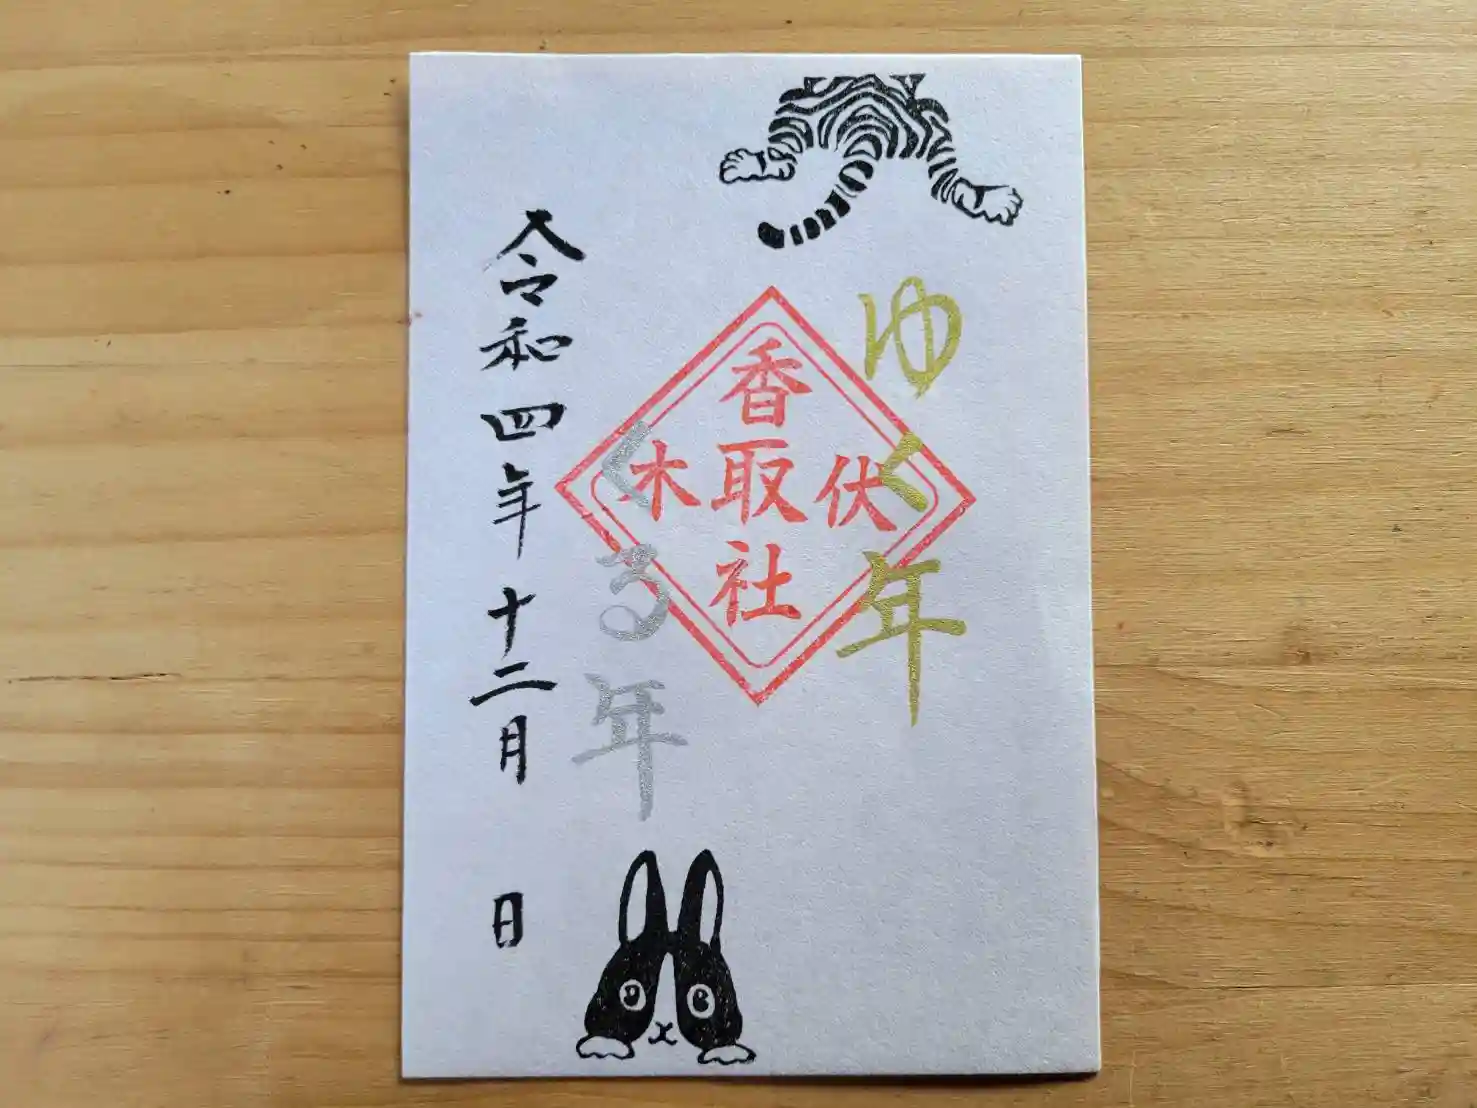 ゆく年
伏木
香取社
くる年
令和四年十二月 日